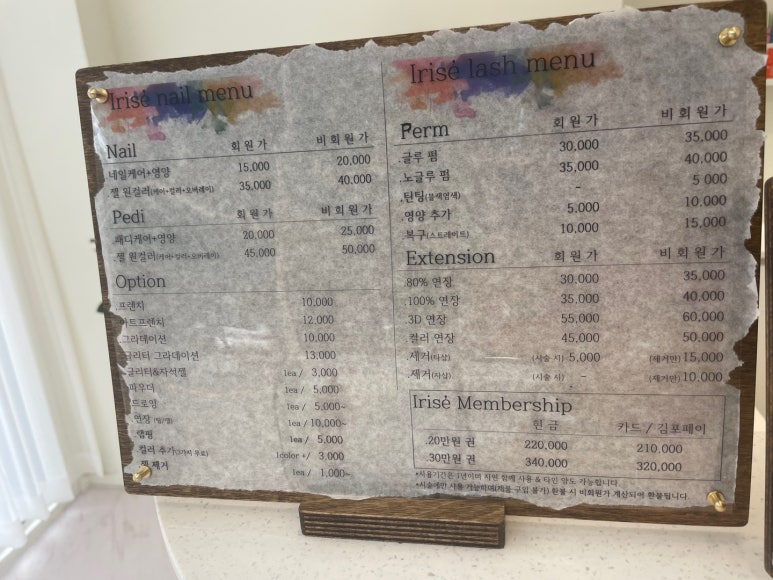 Irisé nail menu
Nail 회원가 비회원가
네일케어+영양 15,000 20,000
.젤 원컬러(케어+컬러+오버레이) 35,000 40,000
Pedi 회원가 비회원가
.패디케어+영양 20,000 25,000
.젤 원컬러(케어+컬러+오버레이) 45,000 50,000
Option
.프렌치 10,000
아트프렌치 12,000
그라데이션 10,000
글리터 그라데이션 13,000
글리터&자석젤 1ea / 3,000
파우더 1ea / 5,000
드로잉 1ea / 5,000~
연장 1ea / 10,000~
랩핑 1ea / 5,000
컬러 추가 1color +/ 3,000
젤 제거 1ea / 1,000~
Irisé lash menu
Perm 회원가 비회원가
.글루 펌 30,000 35,000
.노글루 펌 35,000 40,000
.틴팅(블색염색) - 5 000
.영양 추가 5,000 10,000
복구(스트레이트) 10,000 15,000
Extension 회원가 비회원가
.80% 연장 30,000 35,000
.100% 연장 35,000 40,000
.3D 연장 55,000 60,000
.컬러 연장 45,000 50,000
.제거(타샵) (시술 시) 5,000 (제거만) 15,000
.제거(자샵) (시술 시) - (제거만) 10,000
Irisé Membership
현금 카드 / 김포페이
.20만원 권 220,000 210,000
.30만원 권 340,000 320,000
*사용기간은 1년이며 지인 함께 사용 & 타인 양도 가능합니다
*시술에만 사용 가능하며(제품 구입 불가) 환불 시 비회원가 계산되어 환불됩니다.